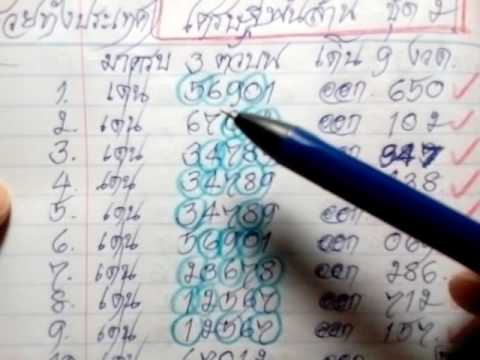 หวยทั้งประเทศ เศรษฐีพันล้าน ชุด 2
มาครบ 3 ตัวบน เดิน 9 งวด.
1. เด่น 56901 ออก 650
2. เด่น 67 ออก 102
3. เด่น 34789 ออก 947
4. เด่น 34789 38
5. เด่น 34789 ออก
6. เด่น 56901 ออก
7. เด่น 23678 ออก 286.
8. เด่น 12567 ออก 712
9. เด่น 12567 ออก 157